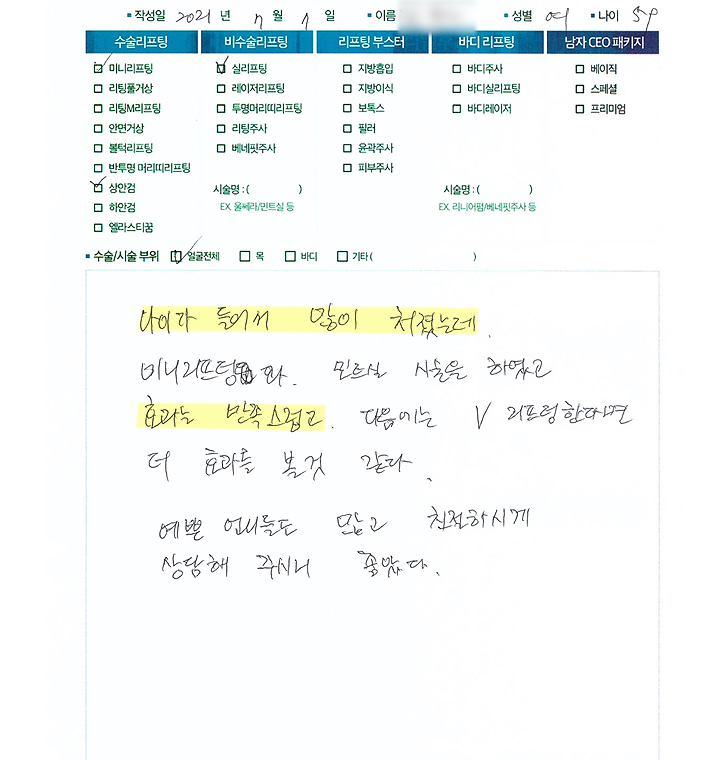 작성일 2021 년 7 월 1 일 이름 성별 여 나이
수술리프팅 비수술리프팅 리프팅 부스터 바디 리프팅 남자 CEO 패키지
미니리프팅 실리프팅 지방흡입 바디주사 베이직
리팅풀거상 레이저리프팅 지방이식 바디실리프팅 스페셜
리팅M리프팅 투명머리띠리프팅 보톡스 바디레이저 프리미엄
안면거상 리팅주사 필러
볼턱리프팅 베네핏주사 윤곽주사
반투명 머리띠리프팅 피부주사
상안검 시술명 : ( ) 시술명 : ( )
하안검 EX. 울쎄라/민트실 등 EX. 리니어펌/베네핏주사 등
엘라스티꿈
수술/시술 부위 얼굴전체 목 바디 기타 ( )
나이가 들어서 많이 처졌는데.
미니리프팅과. 민트실 시술을 하였고
효과는 만족스럽고. 다음에는 V 리프팅한다면
더 효과를 볼것 같다.
예쁜 언니들도 많고 친절하시게
상담해 주시니 좋았다.